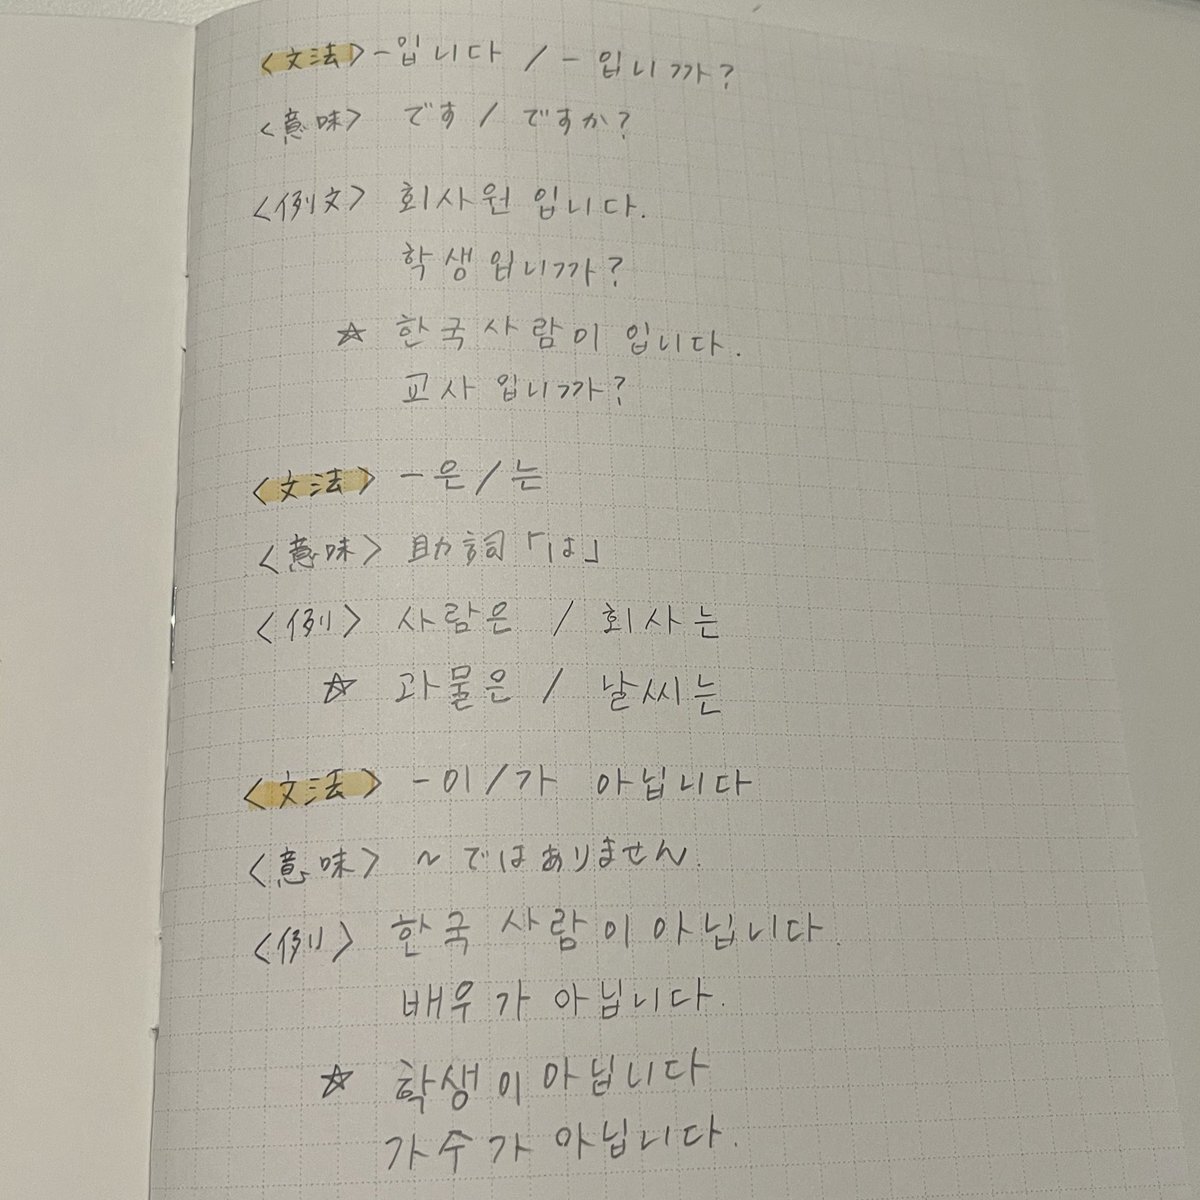 <文法> -입니다 / -입니까?
<意味> です / ですか?
<例文> 회사원 입니다.
학생 입니까?
☆ 한국사람이 입니다.
교사 입니까?
<文法> -은/는
<意味> 助詞「は」
<例> 사람은 / 회사는
☆ 과물은 / 날씨는
<文法> -이/가 아닙니다
<意味> ~ではありません.
<例> 한국 사람이 아닙니다.
배우가 아닙니다.
☆ 학생이 아닙니다
가수가 아닙니다.